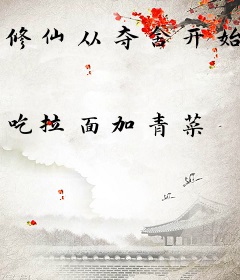 修仙从夺舍开始
吃拉面加青菜